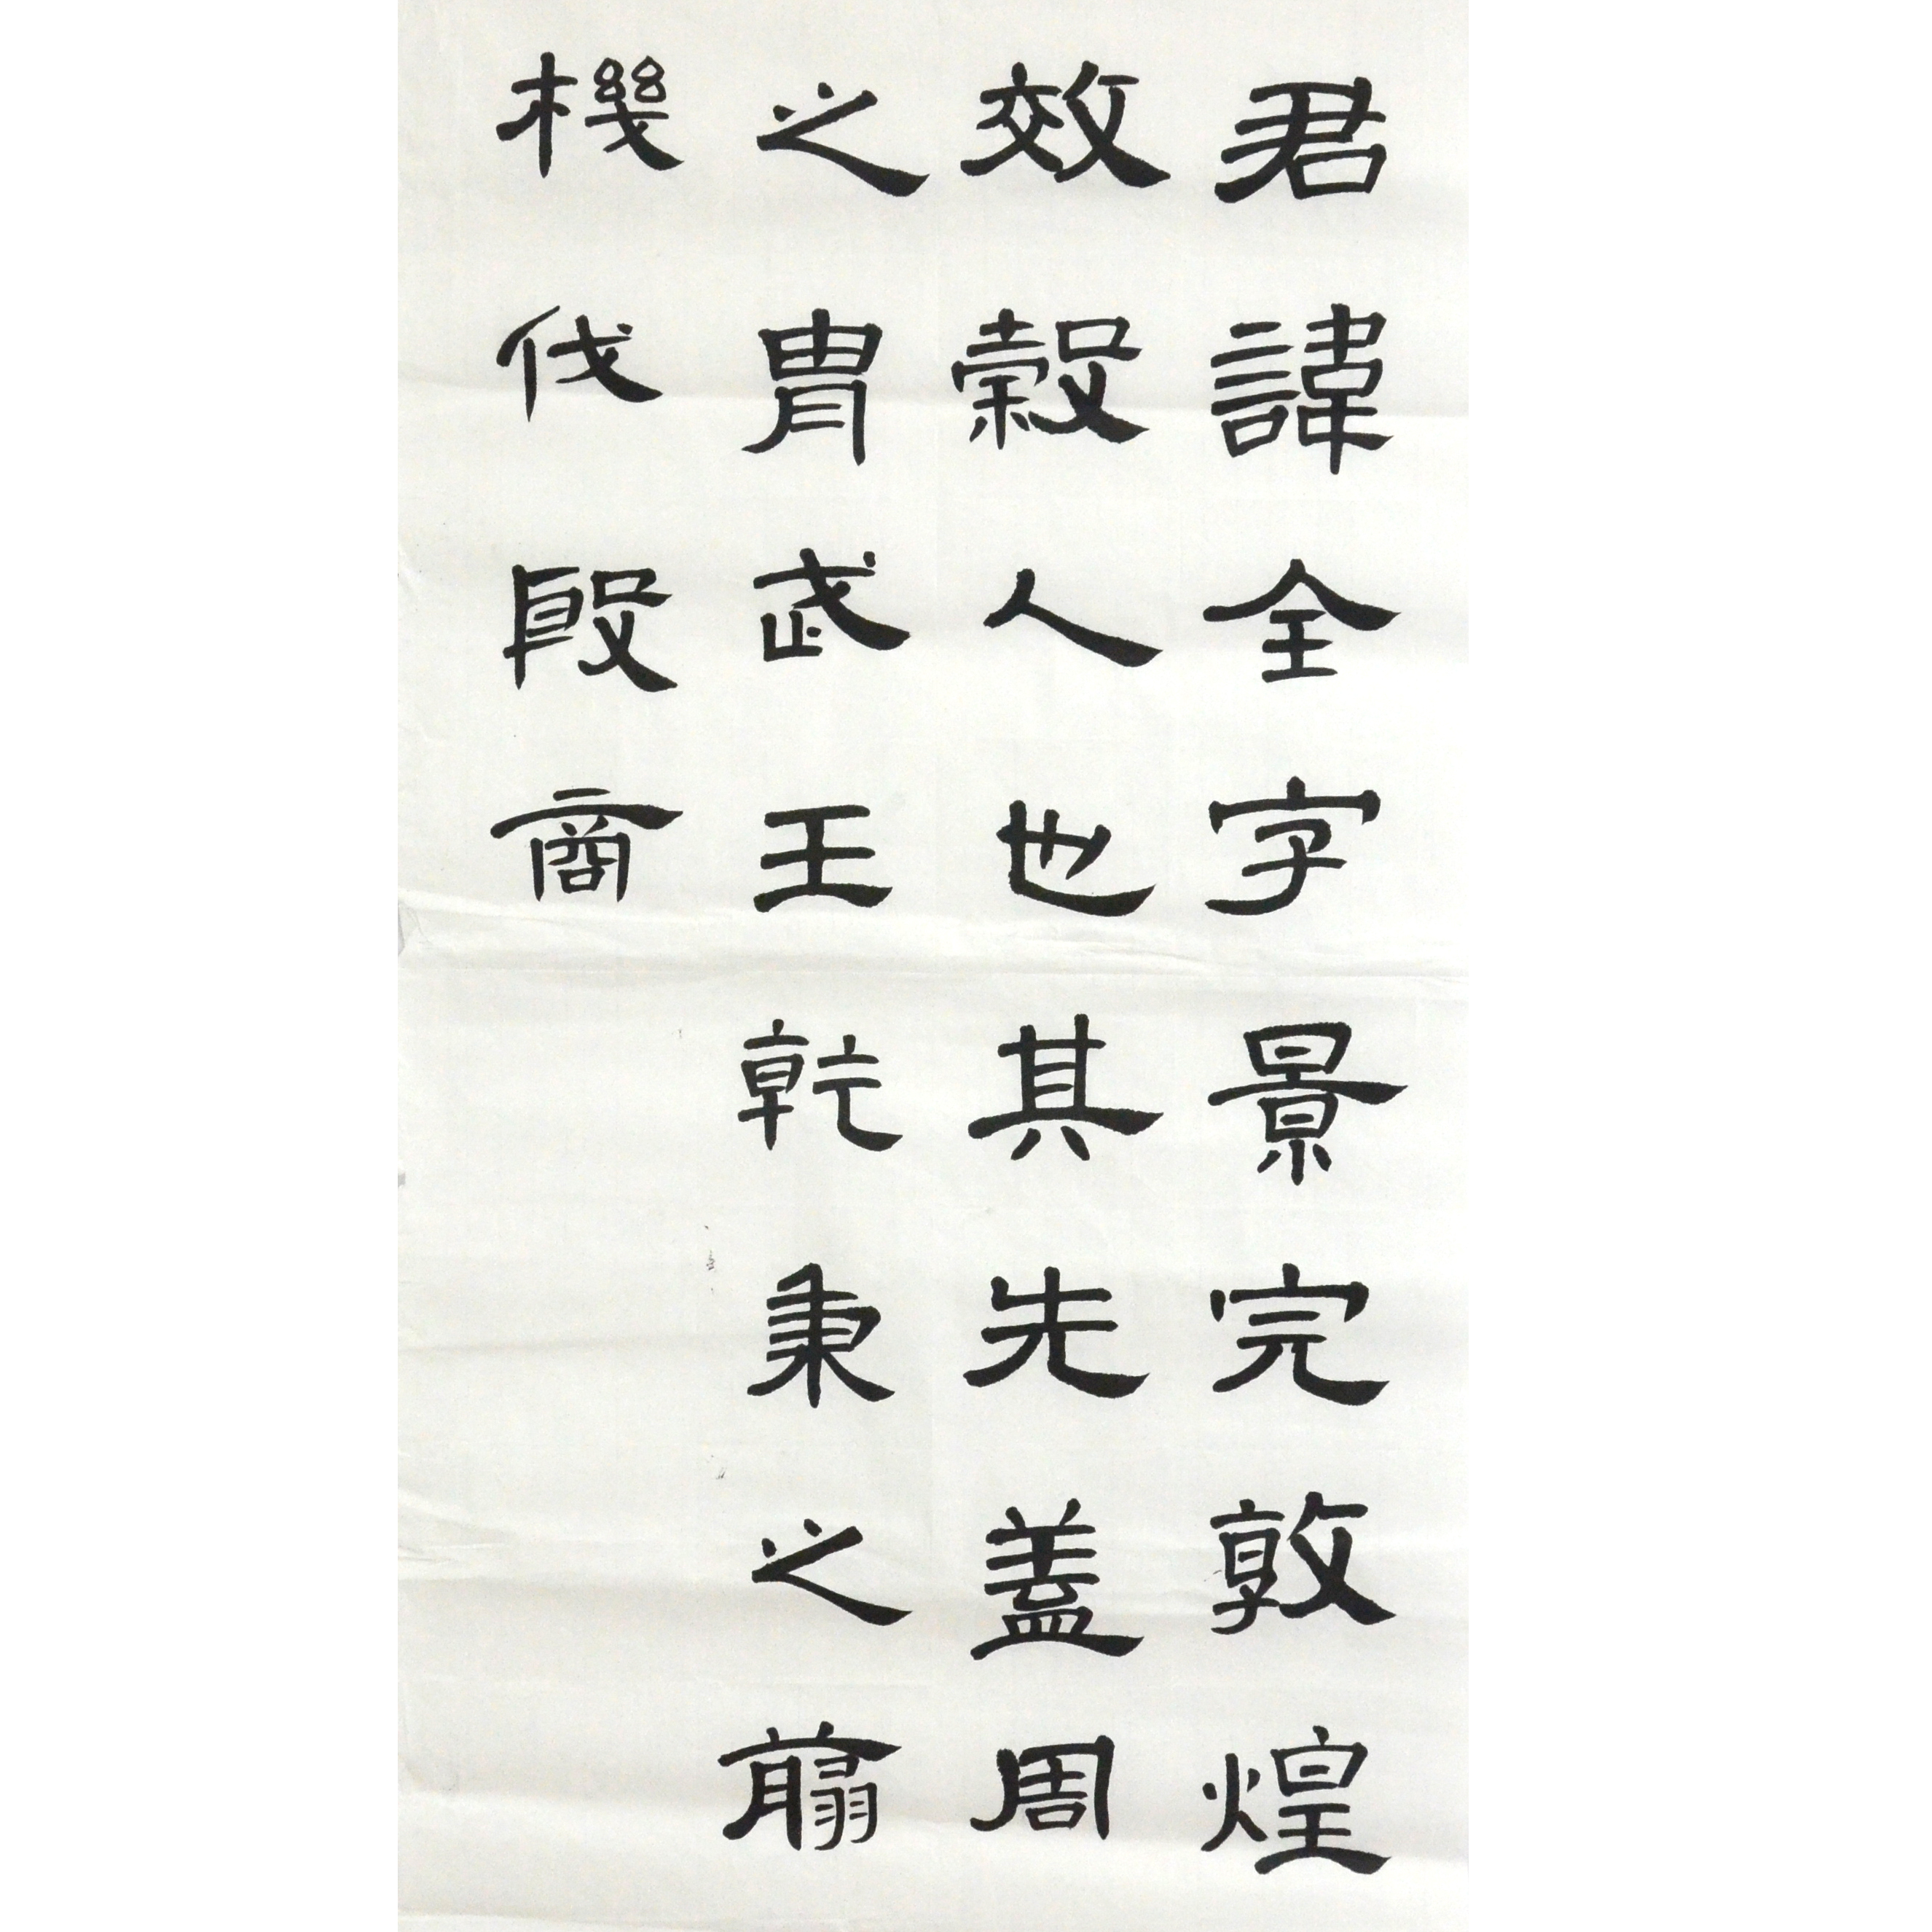 君諱全字景完敦煌
效穀人也其先蓋周
之胄武王乾秉之翦
機伐殷商